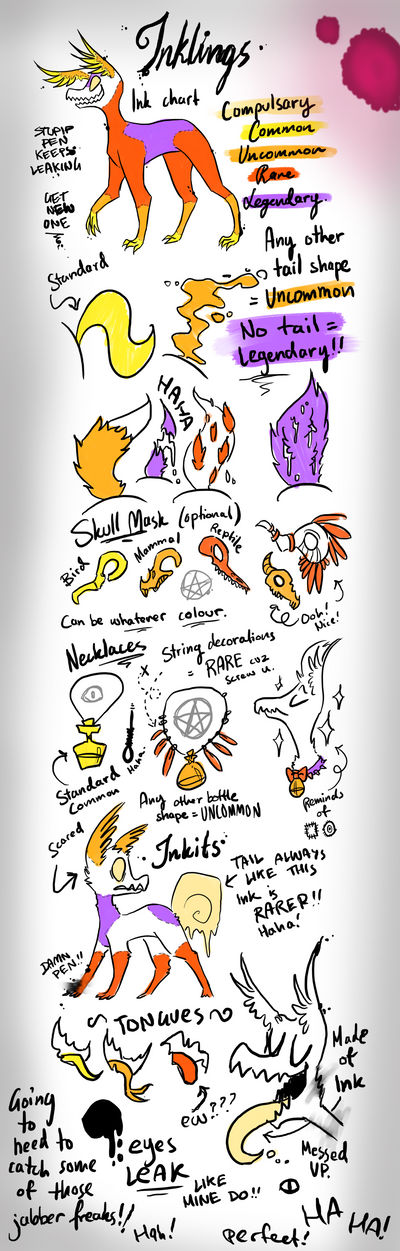 Inklings.
Ink chart
Compulsary
Common
Uncommon
Rare
Legendary.
STUPIP
PEN
KEEPS
LEAKING
GET
NEW
ONE
Standard
Any other
tail shape
= Uncommon
No tail =
Legendary!!
HAHA
Skull Mask (optional)
Bird
Mammal
Reptile
Can be whatever colour.
Ooh!
Nice!
Necklaces
X
String decorations
= RARE cuz
screw u.
Haha.
Standard
Common
Any other bottle
shape = UNCOMMON
Reminds
of
Scared
Inkits.
TAIL ALWAYS
LIKE THIS
Ink is
RARER!!
Haha!
DAMN
PEN!!
~ TONGUES ~
ew???
Made
of
Ink
Messed
UP.
Going
to
need to
catch some
of those
jabber freaks!!
eyes
LEAK
LIKE
MINE DO!!
Hah!
Perfect!
HA
HA!